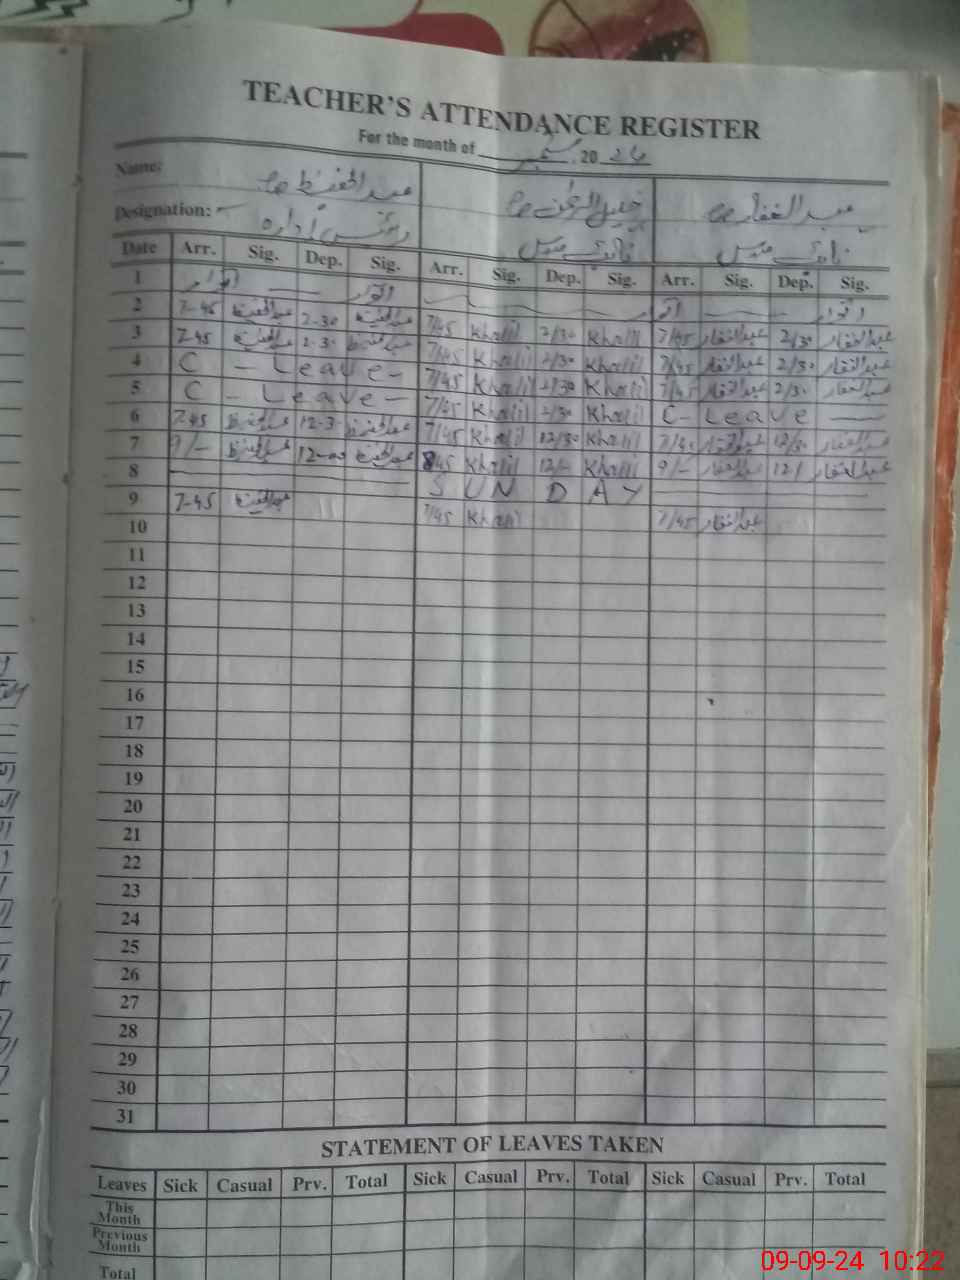 TEACHER'S ATTENDANCE REGISTER
For the month of ستمبر 2024
Name: عبدالحفیظ خلیل الرحمٰن عبدالغفار
Designation: ادارہ نائب نائب
Date Arr. Sig. Dep. Sig. Arr. Sig. Dep. Sig. Arr. Sig. Dep. Sig.
1 اتوار اتوار اتوار
2 7-45 عبدالحفیظ 2-30 عبدالحفیظ 7/45 Khalil 2/30 Khalil 7/45 عبدالغفار 2/30 عبدالغفار
3 7-45 عبدالحفیظ 2-30 عبدالحفیظ 7/45 Khalil 2/30 Khalil 7/45 عبدالغفار 2/30 عبدالغفار
4 C - Leave - 7/45 Khalil 2/30 Khalil 7/45 عبدالغفار 2/30 عبدالغفار
5 C - Leave - 7/45 Khalil 2/30 Khalil C - Leave
6 7-45 عبدالحفیظ 12-3 عبدالحفیظ 7/45 Khalil 12/30 Khalil 7/45 عبدالغفار 12/30 عبدالغفار
7 9/- عبدالحفیظ 12-00 عبدالحفیظ 8/45 Khalil 12/- Khalil 9/- عبدالغفار 12/ عبدالغفار
8 SUNDAY
9 7-45 عبدالحفیظ 7/45 Khalil 7/45 عبدالغفار
10
11
12
13
14
15
16
17
18
19
20
21
22
23
24
25
26
27
28
29
30
31
STATEMENT OF LEAVES TAKEN
Leaves Sick Casual Prv. Total Sick Casual Prv. Total Sick Casual Prv. Total
This Month
Previous Month
Total
09-09-24 10:22